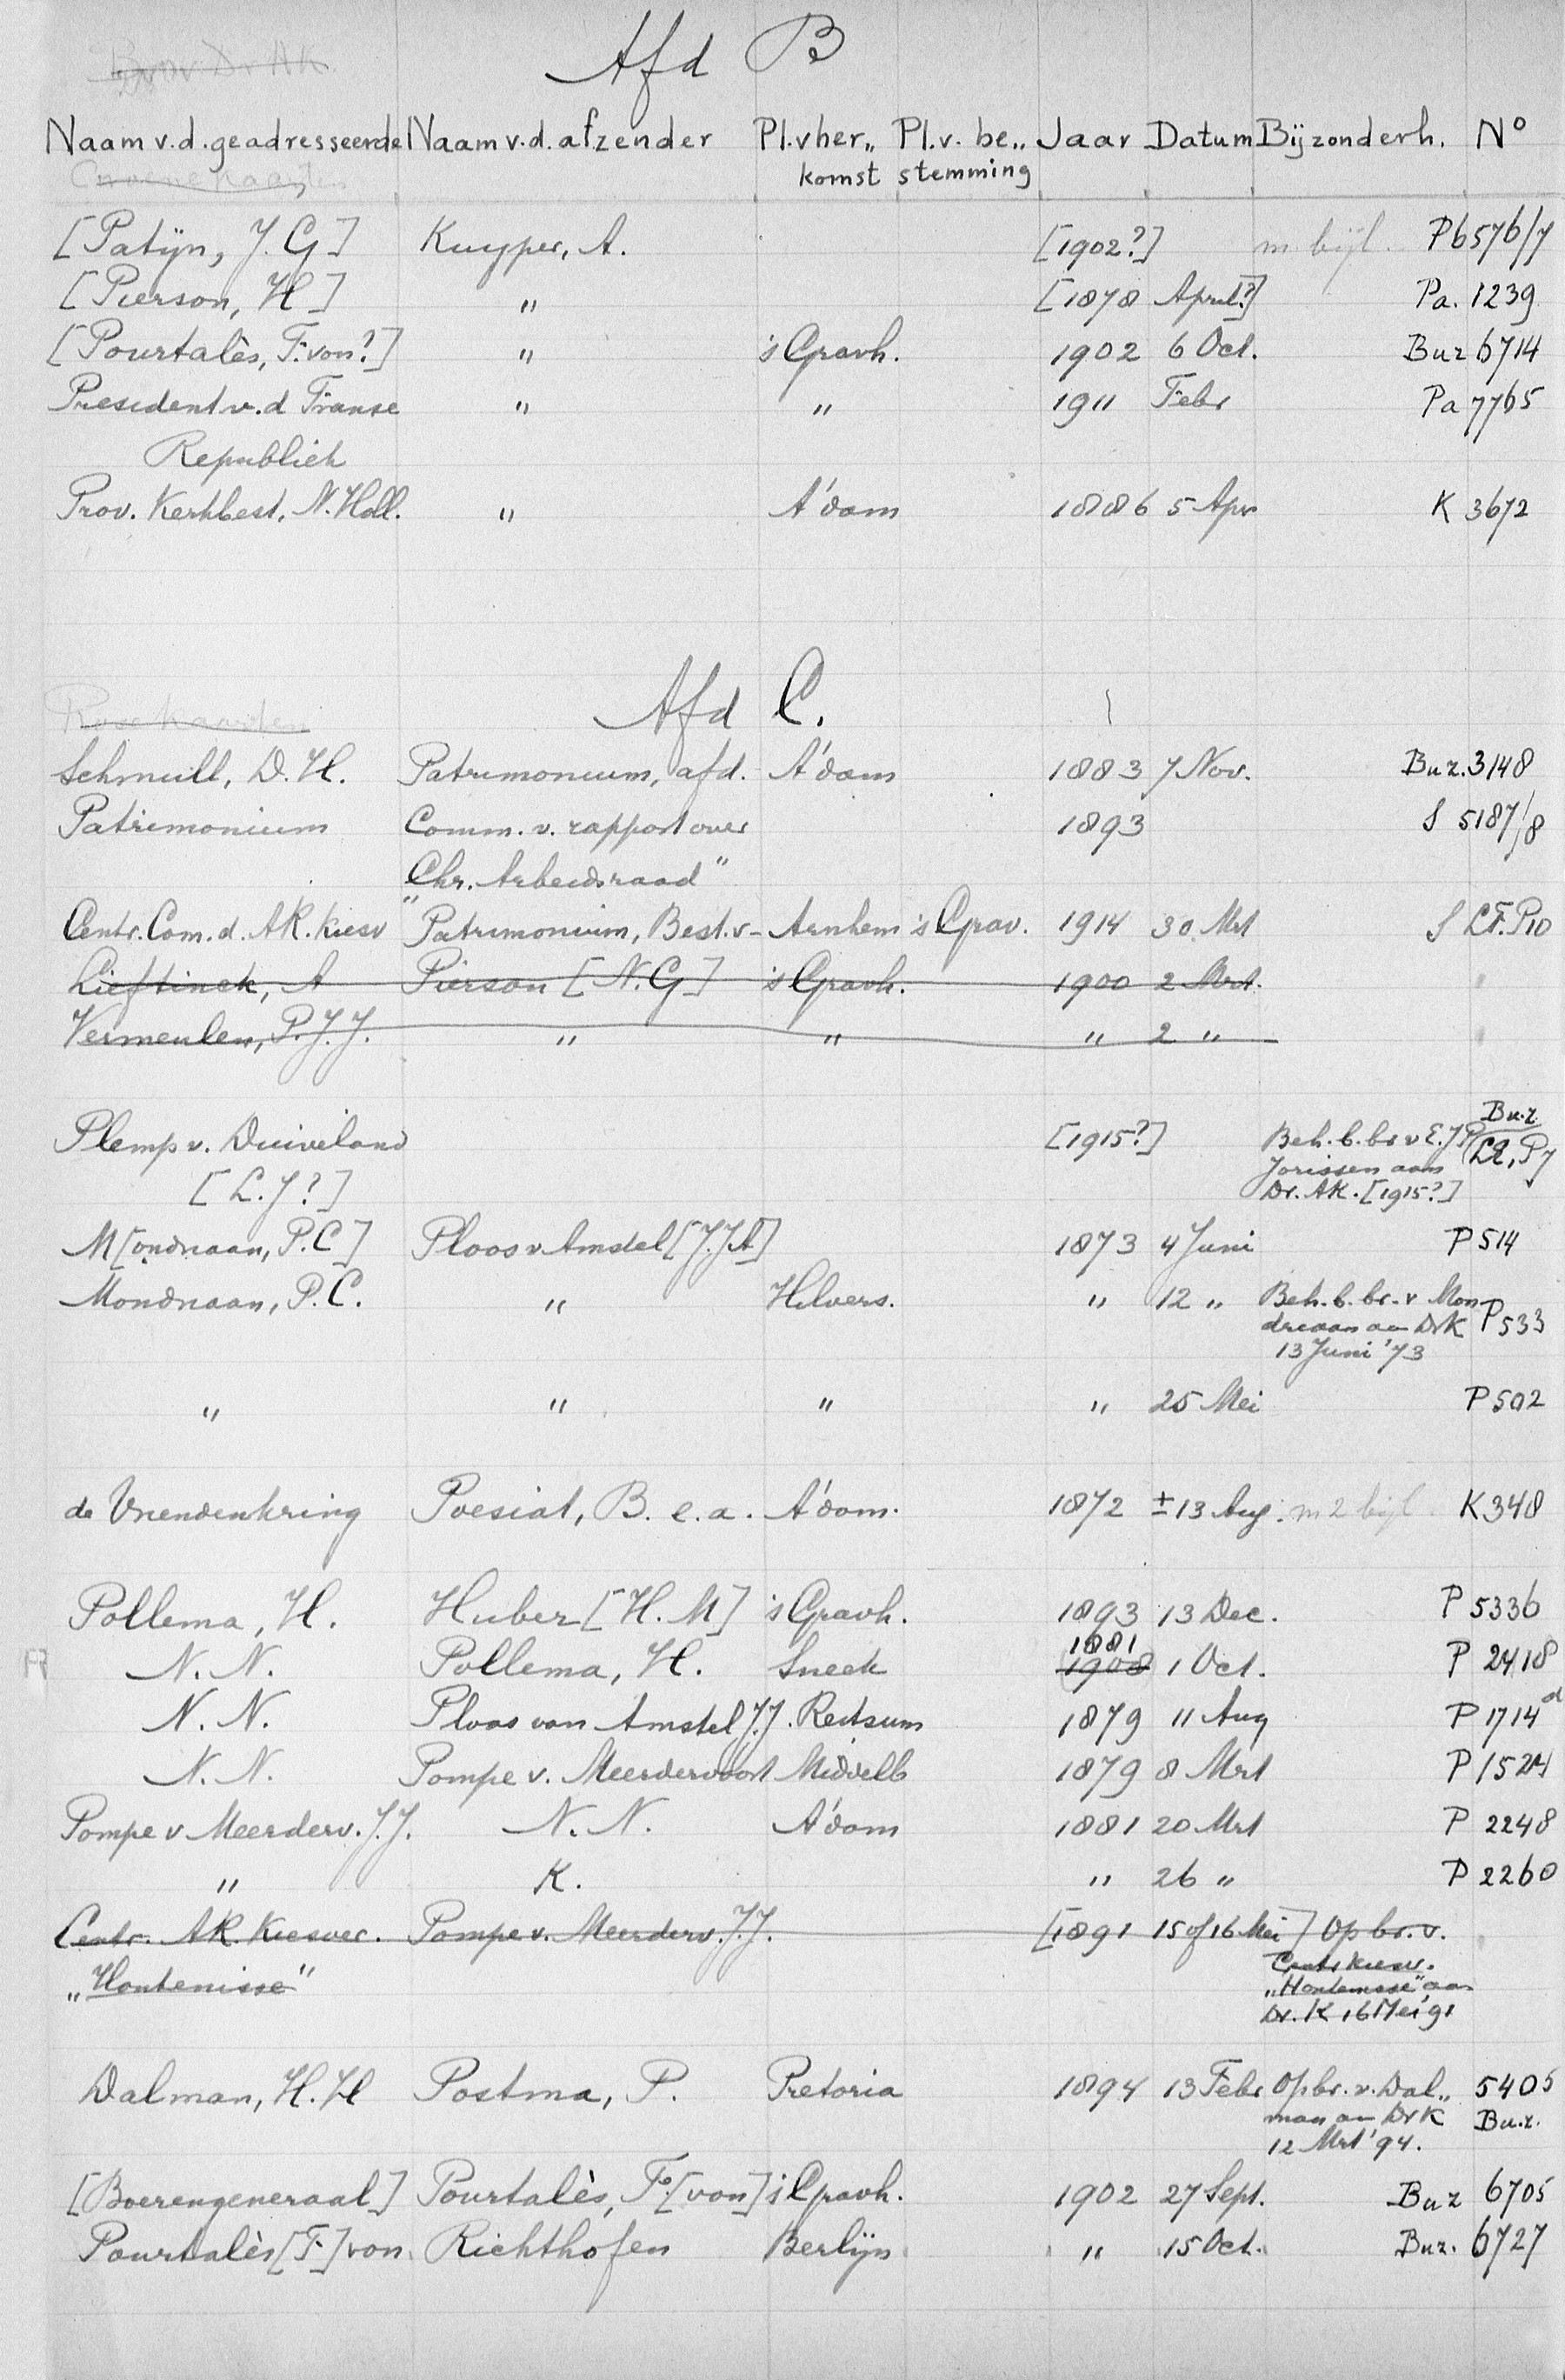 Br v Dr AK
Afd B
Naam v.d. geadresseerde Naam v.d. afzender Pl.v her„ Pl.v. be„ Jaar Datum Bijzonderh. No
komst stemming
Groene kaarten
[Patijn, J.G] Kuyper, A. [1902?] m bijl. P6576/7
[Pierson, H] " [1878 April?] Pa. 1239
[Pourtalès, F. von?] " 's Gravh. 1902 6 Oct. Buz 6714
President v.d Franse " " 1911 Febr Pa 7765
Republiek
Prov. Kerkbest. N. Holl. " A'dam 1886 5 Apr K 3672
Afd C.
Rose kaarten
Schmull, D.H. Patrimonium, afd. A'dam 1883 7 Nov. Buz. 3148
Patrimonium Comm. v. rapport over 1893 S 5187/8
„Chr. Arbeidsraad"
Centr. Com. d. AR. kiesv Patrimonium, Best. v- Arnhem 's Grav. 1914 30 Mrt S LF. P10
Lieftinck, A Pierson [N.G] 's Gravh. 1900 2 Mrt.
Vermeulen, P.J.J. " " " 2 "
Plemp v. Duiveland [1915?] Beh. b. br v E.J.P. Buz
[L.J?] Jorissen aan
Dr. AK. [1915?]
M[ondriaan, P.C] Ploos v Amstel [J.J.A] 1873 4 Juni P 514
Mondriaan, P.C. " Hilvers. " 12 " Beh. b. br. v Mon- P 533
driaan aan Dr K
13 Juni '73
" " " " 25 Mei P 502
de Vriendenkring Poesiat, B. e.a. A'dam. 1872 ± 13 Aug. m 2 bijl. K 348
Pollema, H. Huber [H.M] 's Gravh. 1893 13 Dec. P 5336
1881
N.N. Pollema, H. Sneek 1908 1 Oct. P 2418
N.N. Ploos van Amstel J.J. Reitsum 1879 11 Aug P 1714d
N.N. Pompe v. Meerdervoort Middelb 1879 8 Mrt P 1524
Pompe v Meerderv. J.J. N.N. A'dam 1881 20 Mrt P 2248
" K. " 26 " P 2260
Centr. AR. Kiesver. Pompe v. Meerderv. J.J. [1891 15 of 16 Mei] Op br. v.
„Hontenisse" Centr kiesv.
„Hontenisse" aan
Dr. K 16 Mei '91
Dalman, H.H Postma, P. Pretoria 1894 13 Febr Op br. v. Dal„ 5405
man aan Dr K Buz.
12 Mrt '94.
[Boerengeneraal] Pourtalès, F. [von] 's Gravh. 1902 27 Sept. Buz 6705
Pourtalès [F] von Richthofen Berlijn " 15 Oct. Buz. 6727